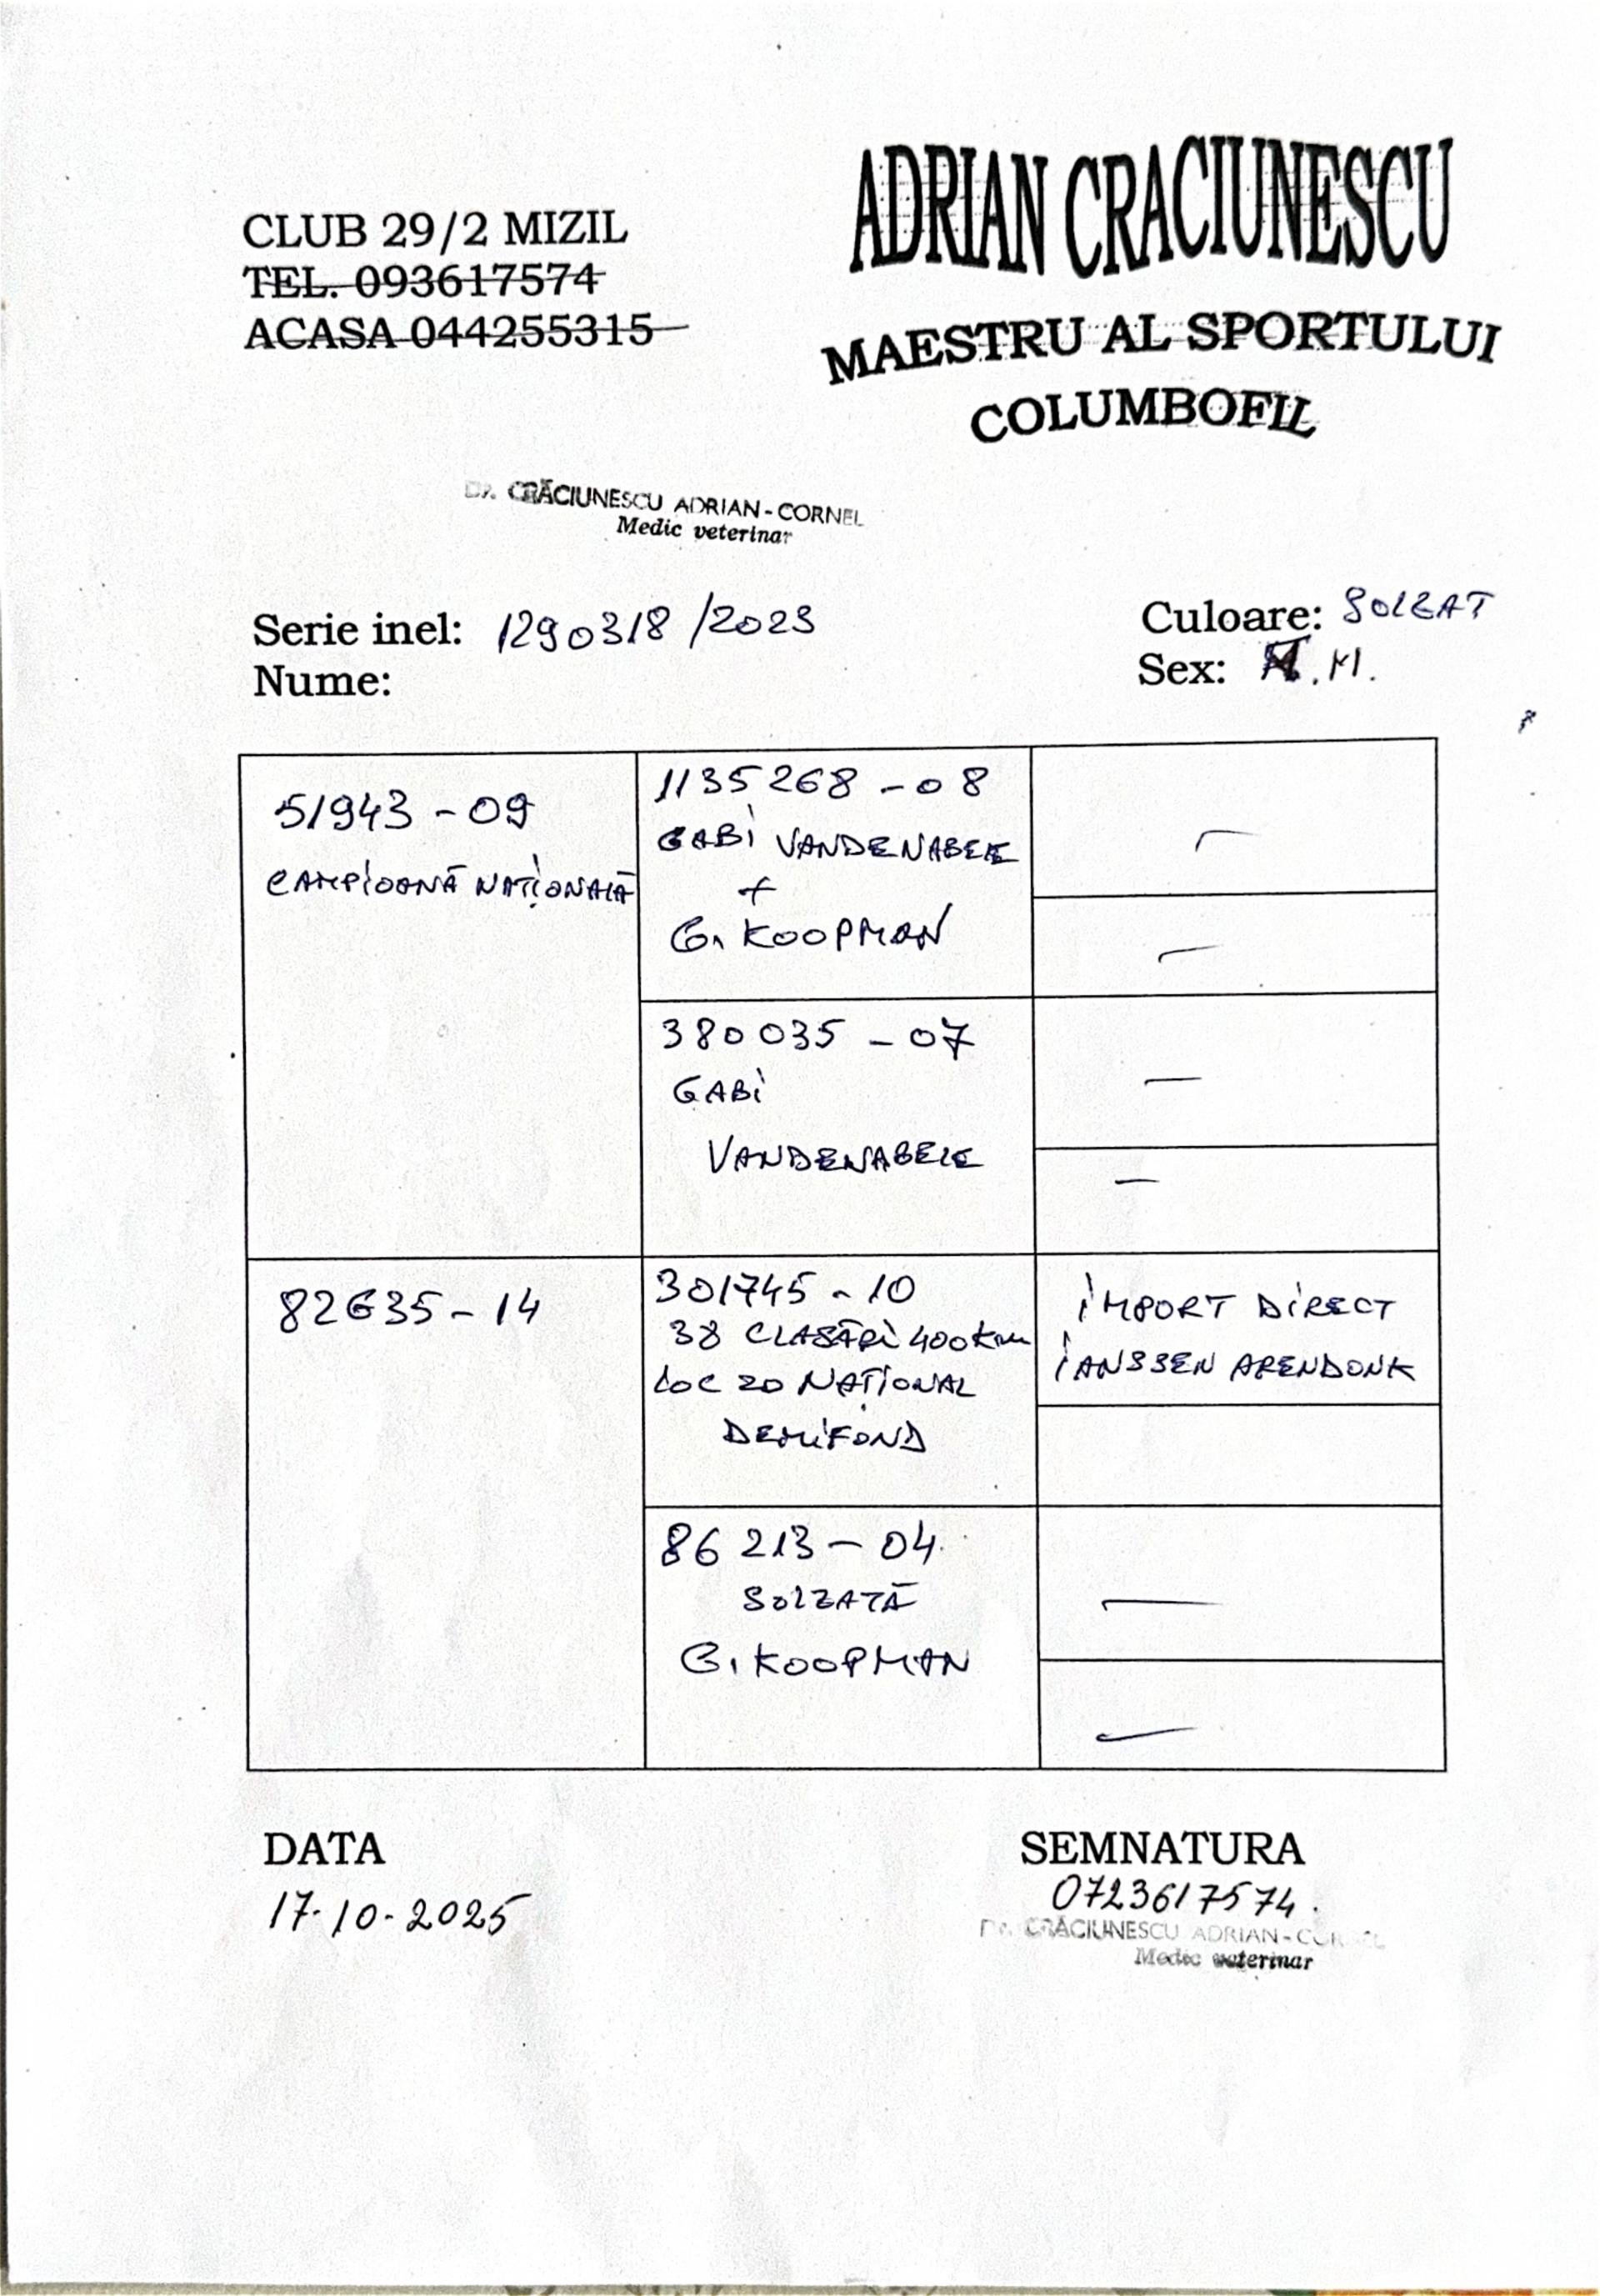 CLUB 29/2 MIZIL
TEL. 093617574
ACASA 044255315
ADRIAN CRACIUNESCU
MAESTRU AL SPORTULUI
COLUMBOFIL
Dr. CRĂCIUNESCU ADRIAN-CORNEL
Medic veterinar
Serie inel: 1290318/2023
Nume:
Culoare: SOLZAT
Sex: M.
51943-09
CAMPIOANĂ NAȚIONALĂ
1135268-08
GABI VANDENABELE
+
G. KOOPMAN
380035-07
GABI
VANDENABELE
82635-14
301745-10
38 CLASĂRI 400km
LOC 20 NAȚIONAL
DEMIFOND
IMPORT DIRECT
IANSSEN ARENDONK
86213-04
SOLZATĂ
G. KOOPMAN
DATA
17-10-2025
SEMNATURA
0723617574.
Dr. CRĂCIUNESCU ADRIAN-CORNEL
Medic veterinar